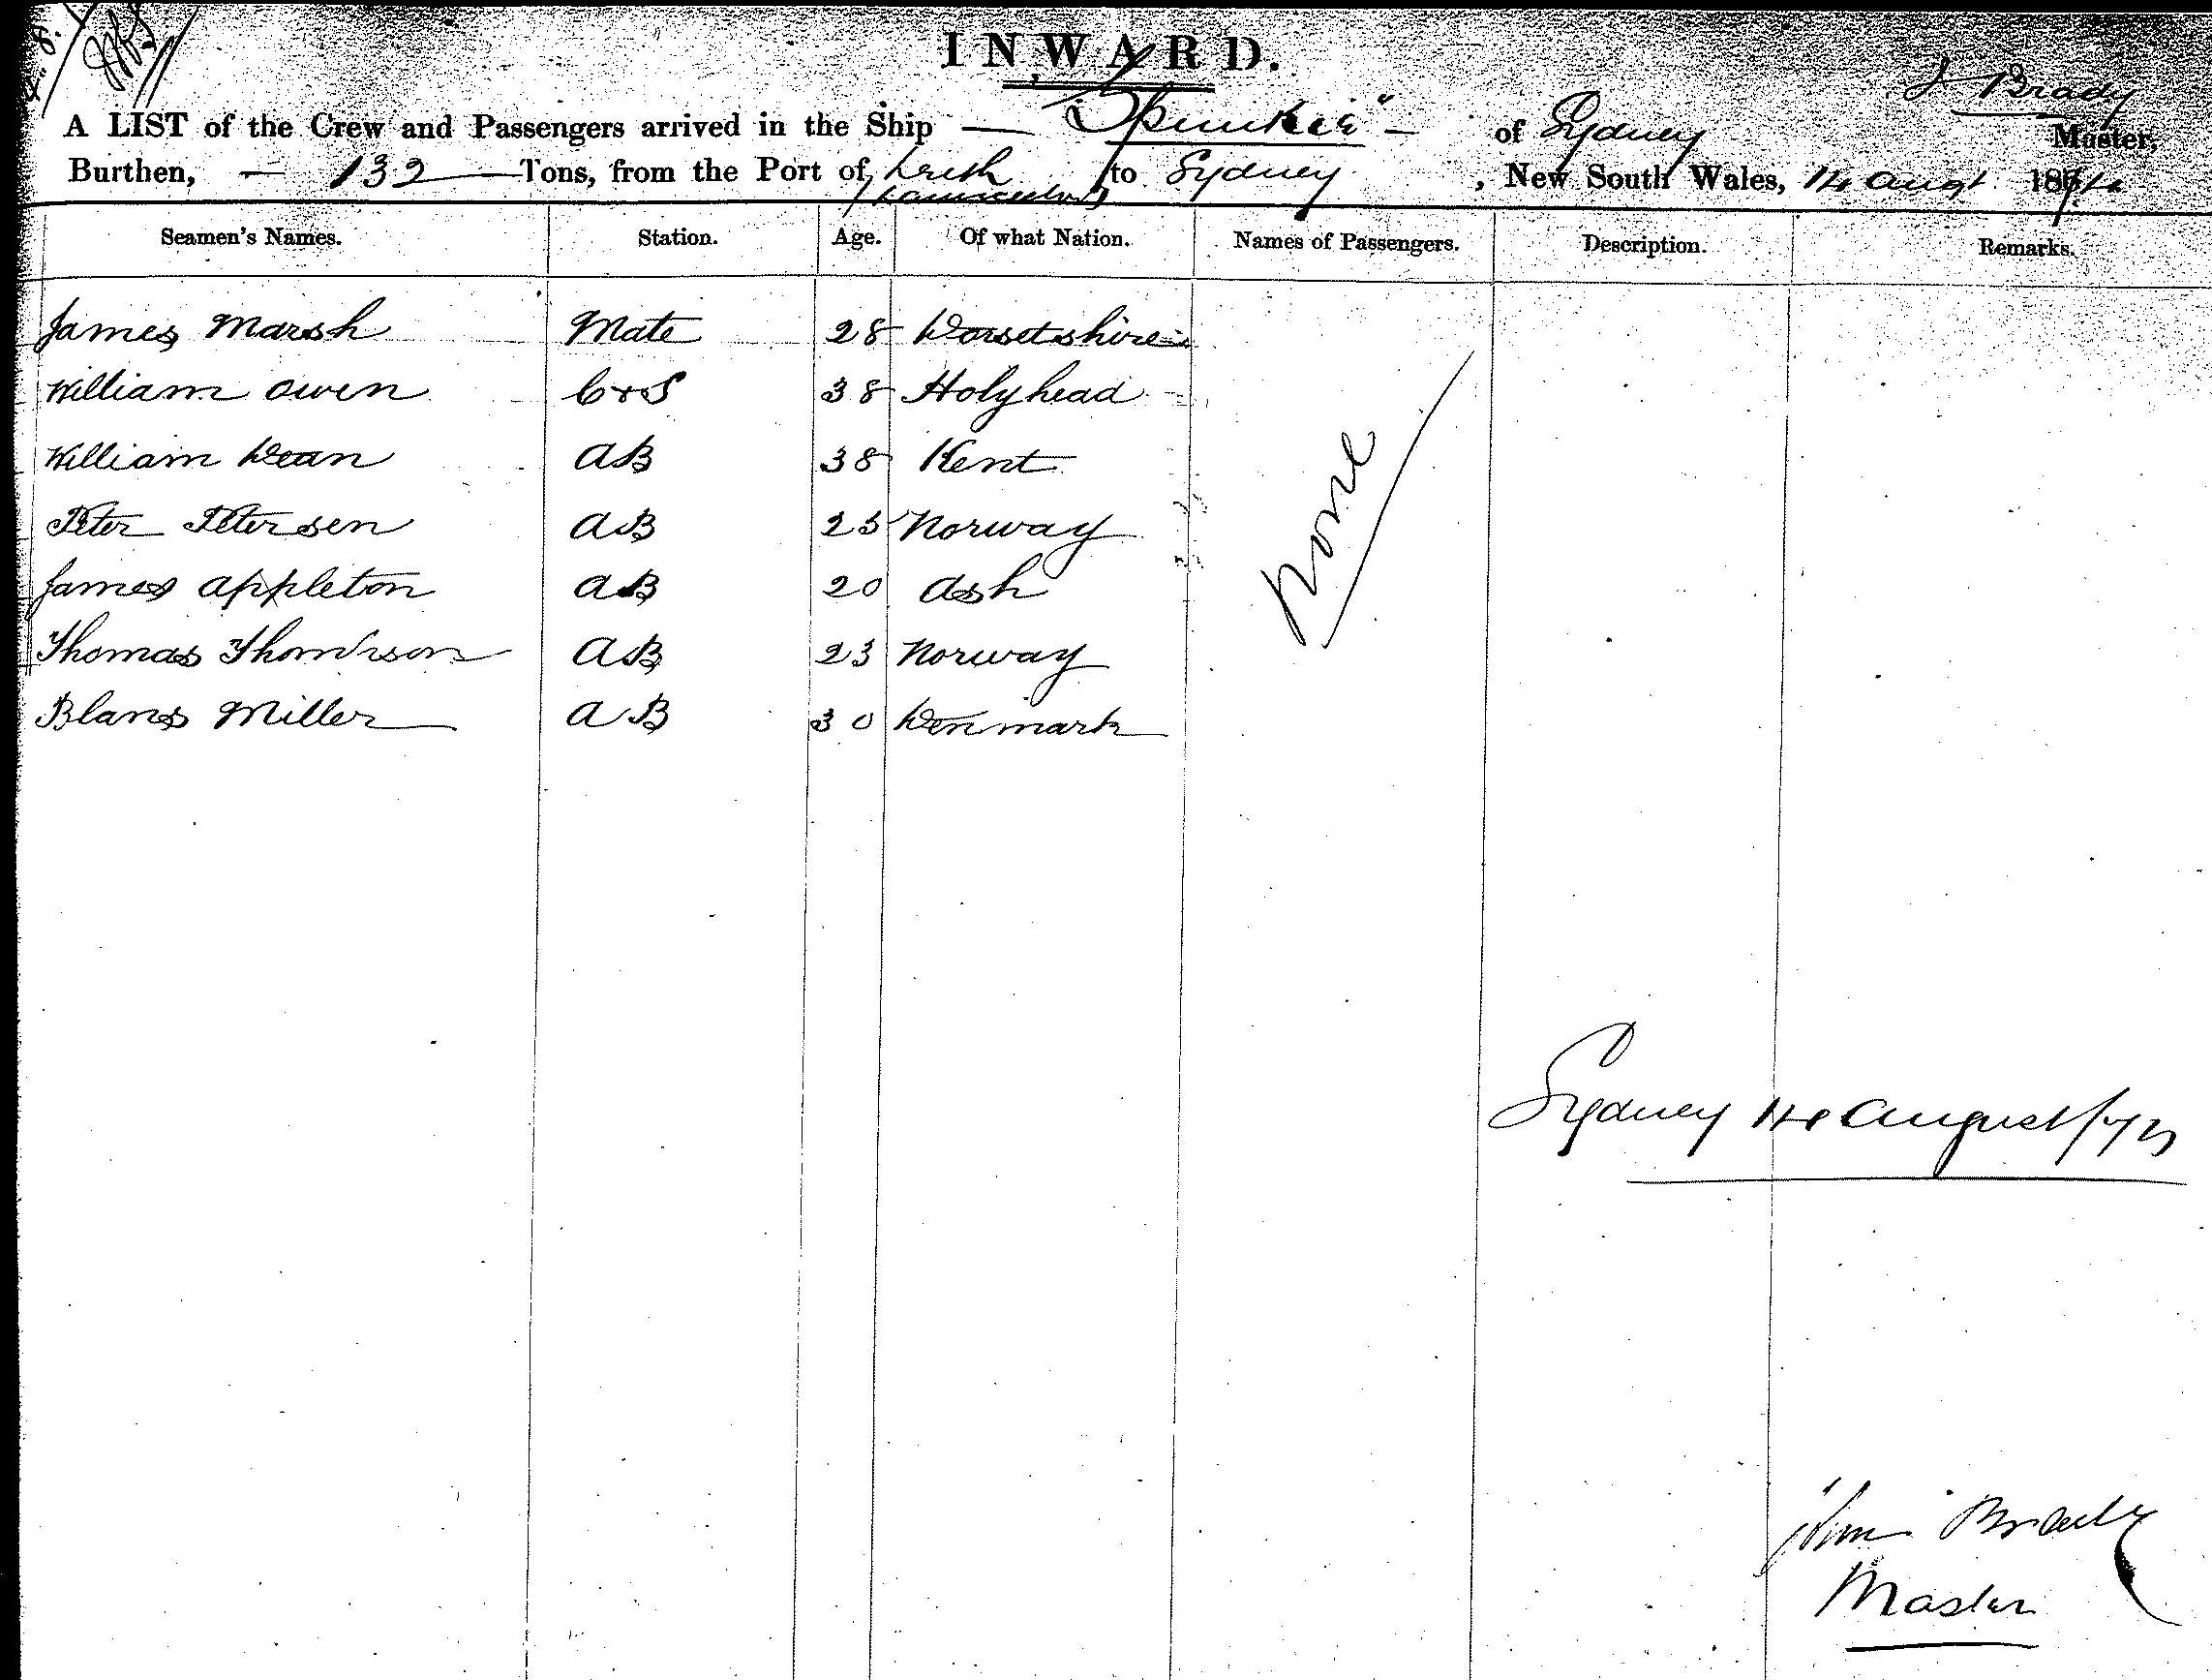 INWARD.
J Brady
A LIST of the Crew and Passengers arrived in the Ship — "Spunkie" — of Sydney Master,
Burthen, — 132 — Tons, from the Port of Leith to Sydney, New South Wales, 14 Augt. 187
(Launceston)
Seamen's Names. Station. Age. Of what Nation. Names of Passengers. Description. Remarks.
James Marsh Mate 28 Dorsetshire
William Owen C & S 38 Holyhead
William Dean AB 38 Kent
Peter Petersen AB 25 Norway
James Appleton AB 20 Ash
Thomas AB 23 Norway
Miller AB 30 Denmark
None
Sydney 14 August
John Brady
Master